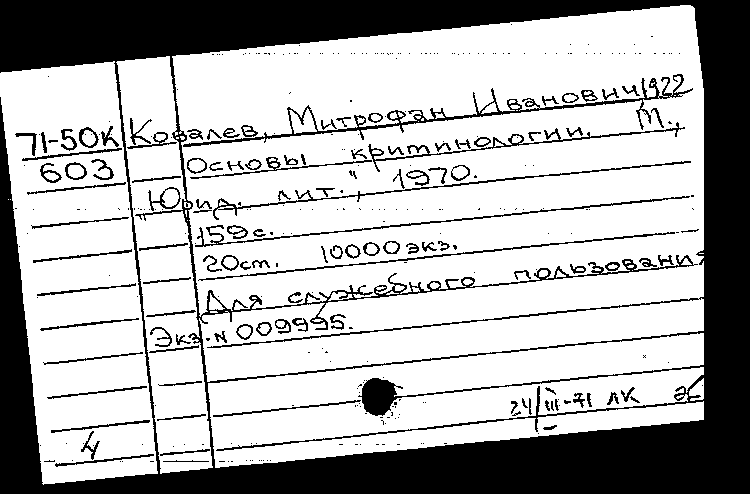 71-50К Ковалев, Митрофан Иванович, 1922
603 Основы криминологии. М.,
"Юрид. лит.", 1970.
159с.
20см. 10000экз.
Для служебного пользования
Экз. N 009995.
24/III-71 ЛК
4